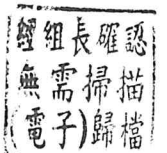 經組長確認
(無需掃描
電子)歸檔